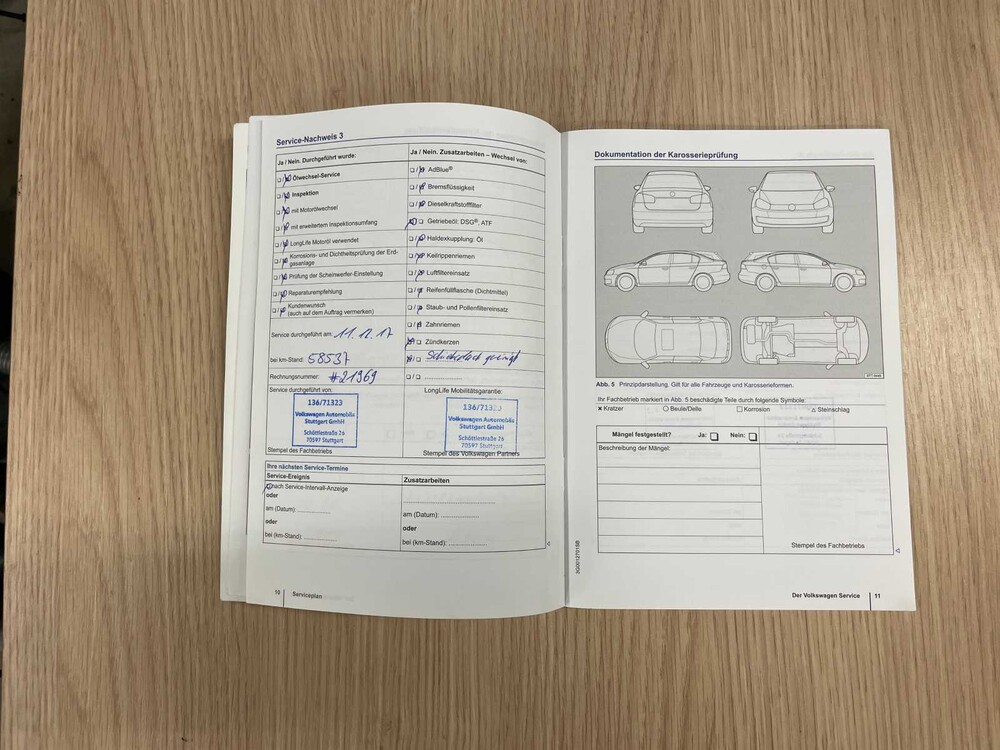 Service-Nachweis 3
Ja / Nein. Durchgeführt wurde:
Ölwechsel-Service
Inspektion
mit Motorölwechsel
mit erweitertem Inspektionsumfang
LongLife Motoröl verwendet
Korrosions- und Dichtheitsprüfung der Erd-
gasanlage
Prüfung der Scheinwerfer-Einstellung
Reparaturempfehlung
Kundenwunsch
(auch auf dem Auftrag vermerken)
Service durchgeführt am: 11.12.17
bei km-Stand: 58537
Rechnungsnummer: #21969
Service durchgeführt von:
136/71323
Volkswagen Automobile
Stuttgart GmbH
Schöttlestraße 26
70597 Stuttgart
Stempel des Fachbetriebs
Ja / Nein. Zusatzarbeiten – Wechsel von:
AdBlue®
Bremsflüssigkeit
Dieselkraftstofffilter
Getriebeöl: DSG®, ATF
Haldexkupplung: Öl
Keilrippenriemen
Luftfiltereinsatz
Reifenfüllflasche (Dichtmittel)
Staub- und Pollenfiltereinsatz
Zahnriemen
Zündkerzen
LongLife Mobilitätsgarantie:
136/71323
Volkswagen Automobile
Stuttgart GmbH
Schöttlestraße 26
70597 Stuttgart
Stempel des Volkswagen Partners
Ihre nächsten Service-Termine
Service-Ereignis
nach Service-Intervall-Anzeige
oder
am (Datum):
oder
bei (km-Stand):
Zusatzarbeiten
am (Datum):
oder
bei (km-Stand):
10 Serviceplan
Dokumentation der Karosserieprüfung
Abb. 5 Prinzipdarstellung. Gilt für alle Fahrzeuge und Karosserieformen.
Ihr Fachbetrieb markiert in Abb. 5 beschädigte Teile durch folgende Symbole:
Kratzer Beule/Delle Korrosion Steinschlag
Mängel festgestellt? Ja: Nein:
Beschreibung der Mängel:
Stempel des Fachbetriebs
3G0012701SB
Der Volkswagen Service 11